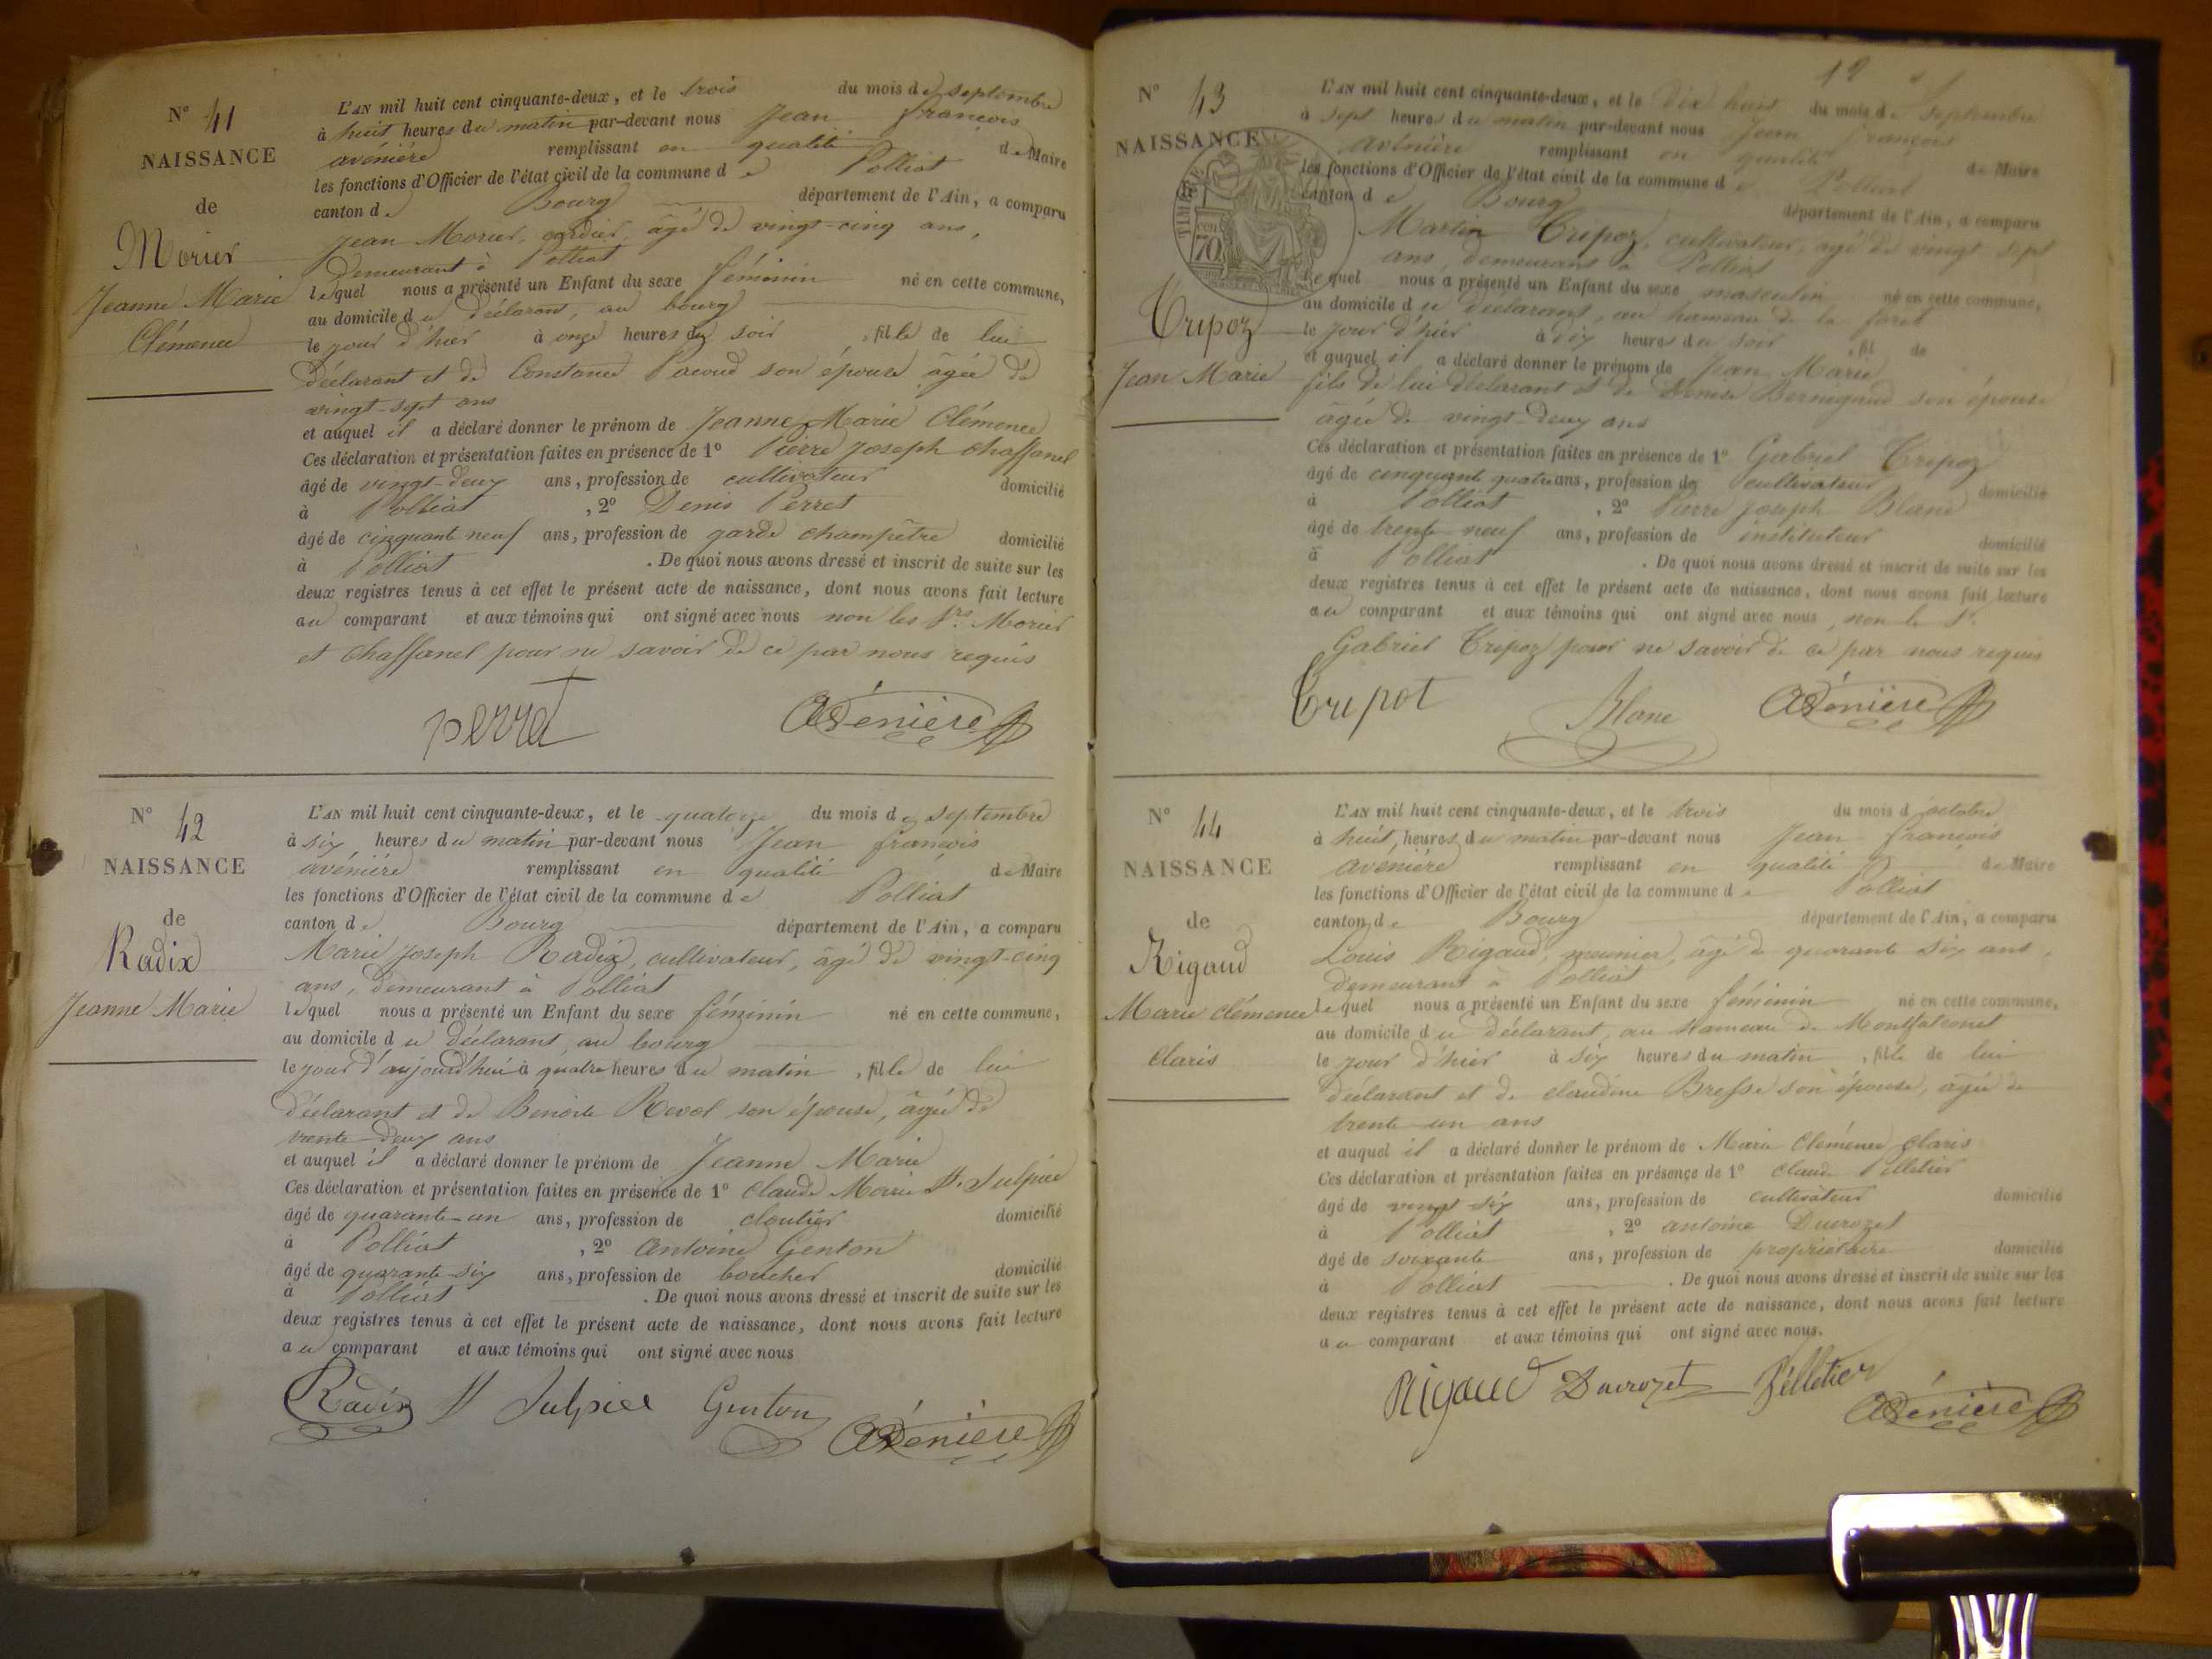 N° 41
NAISSANCE
de
Morier
Jeanne Marie
Clémence
L'AN mil huit cent cinquante-deux, et le trois du mois de septembre
à huit heures du matin par-devant nous Jean françois
avénière remplissant en qualité de Maire
les fonctions d'Officier de l'état civil de la commune de Polliat
canton de Bourg département de l'Ain, a comparu
Jean Morier, âgé de vingt-cinq ans,
demeurant à Polliat
lequel nous a présenté un Enfant du sexe féminin né en cette commune,
au domicile du déclarant, au bourg
le jour d'hier à onze heures du soir, fille de lui
déclarant et de Constance Pacoud son épouse âgée de
vingt-sept ans
et auquel il a déclaré donner le prénom de Jeanne Marie Clémence
Ces déclaration et présentation faites en présence de 1° Pierre Joseph Chaffanel
âgé de vingt-deux ans, profession de cultivateur domicilié
à Polliat, 2° Denis Perret
âgé de cinquante neuf ans, profession de garde champêtre domicilié
à Polliat. De quoi nous avons dressé et inscrit de suite sur les
deux registres tenus à cet effet le présent acte de naissance, dont nous avons fait lecture
au comparant et aux témoins qui ont signé avec nous non les Srs Morier
et Chaffanel pour ne savoir de ce par nous requis
perret Avénière
N° 42
NAISSANCE
de
Radix
Jeanne Marie
L'AN mil huit cent cinquante-deux, et le quatorze du mois de septembre
à six heures du matin par-devant nous Jean françois
avénière remplissant en qualité de Maire
les fonctions d'Officier de l'état civil de la commune de Polliat
canton de Bourg département de l'Ain, a comparu
Marie Joseph Radix, cultivateur, âgé de vingt-cinq
ans, demeurant à Polliat
lequel nous a présenté un Enfant du sexe féminin né en cette commune,
au domicile du déclarant, au bourg
le jour d'aujourd'hui à quatre heures du matin, fille de lui
déclarant et de Benoite Revol son épouse, âgée de
trente-deux ans
et auquel il a déclaré donner le prénom de Jeanne Marie
Ces déclaration et présentation faites en présence de 1° Claude Marie St. Sulpice
âgé de quarante-un ans, profession de cloutier domicilié
à Polliat, 2° Antoine Genton
âgé de quarante-six ans, profession de boucher domicilié
à Polliat. De quoi nous avons dressé et inscrit de suite sur les
deux registres tenus à cet effet le présent acte de naissance, dont nous avons fait lecture
au comparant et aux témoins qui ont signé avec nous
Radix St Sulpice Genton Avénière
N° 43
NAISSANCE
de
TIMBRE
70
Tripoz
Jean Marie
L'AN mil huit cent cinquante-deux, et le dix huit du mois de septembre
à sept heures du matin par-devant nous Jean françois
avénière remplissant en qualité de Maire
les fonctions d'Officier de l'état civil de la commune de Polliat
canton de Bourg département de l'Ain, a comparu
Martin Tripoz, cultivateur, âgé de vingt sept
ans, demeurant à Polliat
lequel nous a présenté un Enfant du sexe masculin né en cette commune,
au domicile du déclarant, au hameau de la forêt
le jour d'hier à dix heures du soir, fil de
et auquel il a déclaré donner le prénom de Jean Marie
fils de lui déclarant et de Denise Bernigaud son épouse
âgée de vingt-deux ans
Ces déclaration et présentation faites en présence de 1° Gabriel Tripoz
âgé de cinquante quatre ans, profession de cultivateur domicilié
à Polliat, 2° Pierre Joseph Blanc
âgé de trente neuf ans, profession de instituteur domicilié
à Polliat. De quoi nous avons dressé et inscrit de suite sur les
deux registres tenus à cet effet le présent acte de naissance, dont nous avons fait lecture
au comparant et aux témoins qui ont signé avec nous, non le Sr
Gabriel Tripoz pour ne savoir de ce par nous requis
Tripot Blanc Avénière
N° 44
NAISSANCE
de
Rigaud
Marie Clémence
Claris
L'AN mil huit cent cinquante-deux, et le trois du mois d'octobre
à huit heures du matin par-devant nous Jean françois
avénière remplissant en qualité de Maire
les fonctions d'Officier de l'état civil de la commune de Polliat
canton de Bourg département de l'Ain, a comparu
Louis Rigaud, meunier, âgé de quarante six ans,
demeurant à Polliat
lequel nous a présenté un Enfant du sexe féminin né en cette commune,
au domicile du déclarant, au hameau de Montfalconet
le jour d'hier à six heures du matin, fille de lui
déclarant et de claudine Bresse son épouse, âgée de
trente-un ans
et auquel il a déclaré donner le prénom de Marie Clémence Claris
Ces déclaration et présentation faites en présence de 1° Claude Pelletier
âgé de vingt-six ans, profession de cultivateur domicilié
à Polliat, 2° antoine Ducrozet
âgé de soixante ans, profession de propriétaire domicilié
à Polliat. De quoi nous avons dressé et inscrit de suite sur les
deux registres tenus à cet effet le présent acte de naissance, dont nous avons fait lecture
au comparant et aux témoins qui ont signé avec nous.
Rigaud Ducrozet Pelletier
Avénière